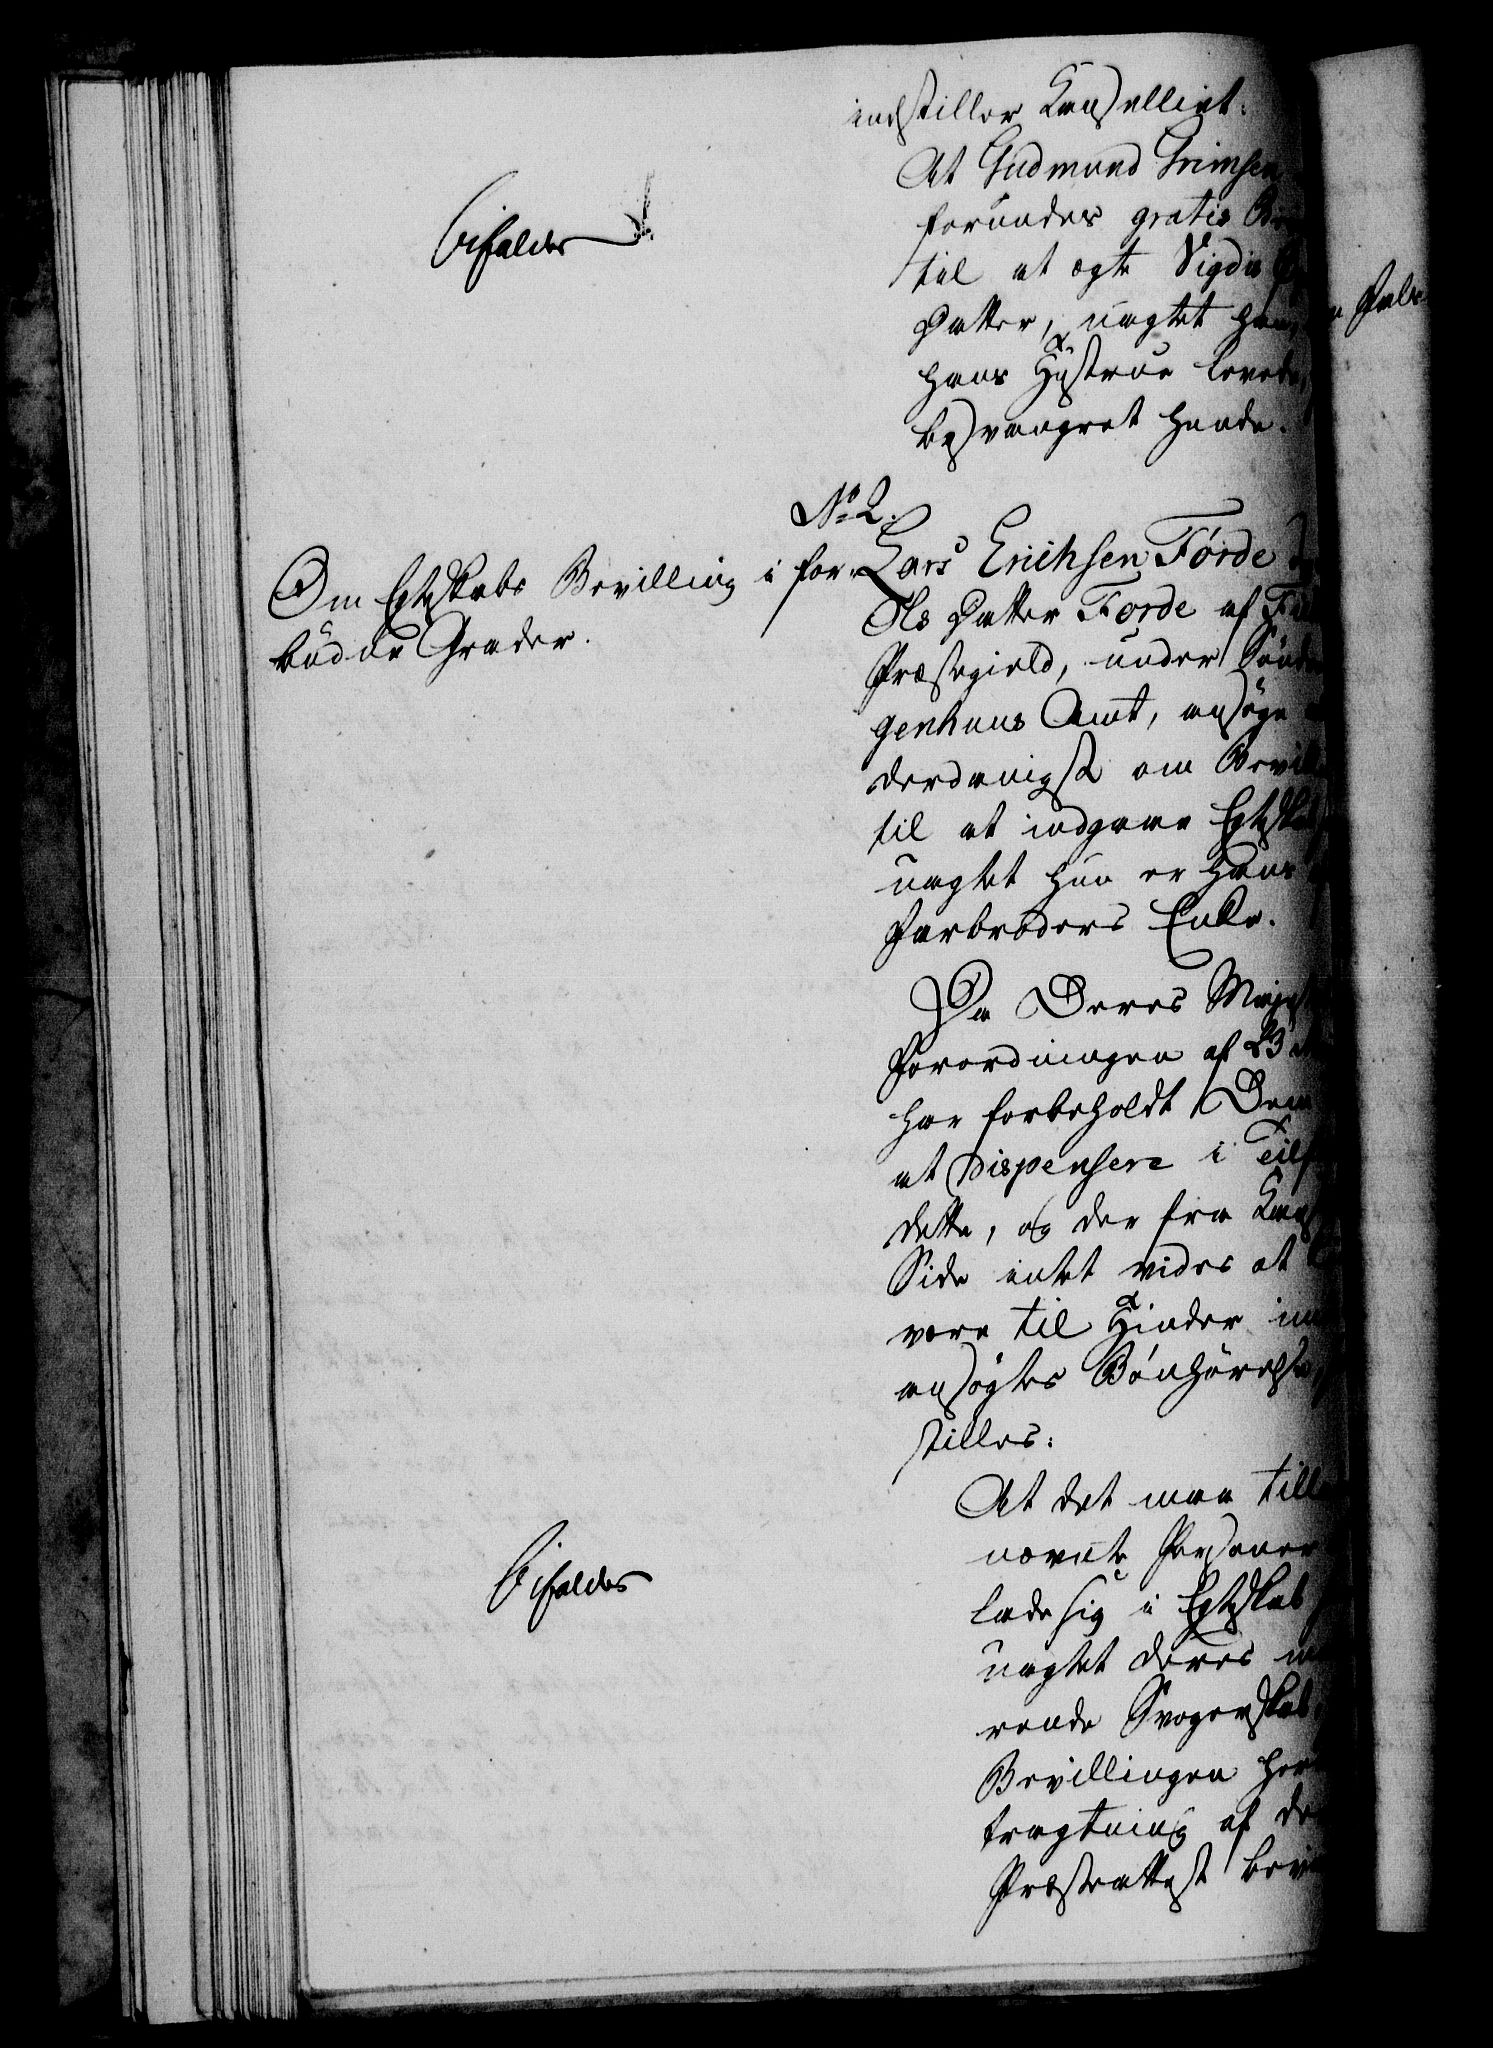 indstiller Cancelliet:
At Gudmund Grimsen
forundes gratis
til at ægte Vigdis
Datter, uagtet han,
hans Hustrue levede,
besvangret hende.
Bifaldes
No 2.
Om Egteskabs Bevilling i for-
budne Grader.
Lars Erichsen Förde
Ols Datter Förde af
Præstegield, under Sönd
genhuus Amt, ansöge
derdanigst om Bevill
til at indgaae Egteskab
uagtet hun er hans
Farbroders Enke.
Da Deres Majest
Forordningen af 23
har forbeholdt Dem
at dispensere i Tilf
dette, og der fra Can
Side intet vides at
være til Hinder im
ansögtes Bönhörelse,
stilles:
At det maa till
nævnte Personer
lade sig i Egteskab
uagtet deres
rende Svogerskab
Bevillingen her
tragtning af de
Præsteattest bevi
Bifaldes